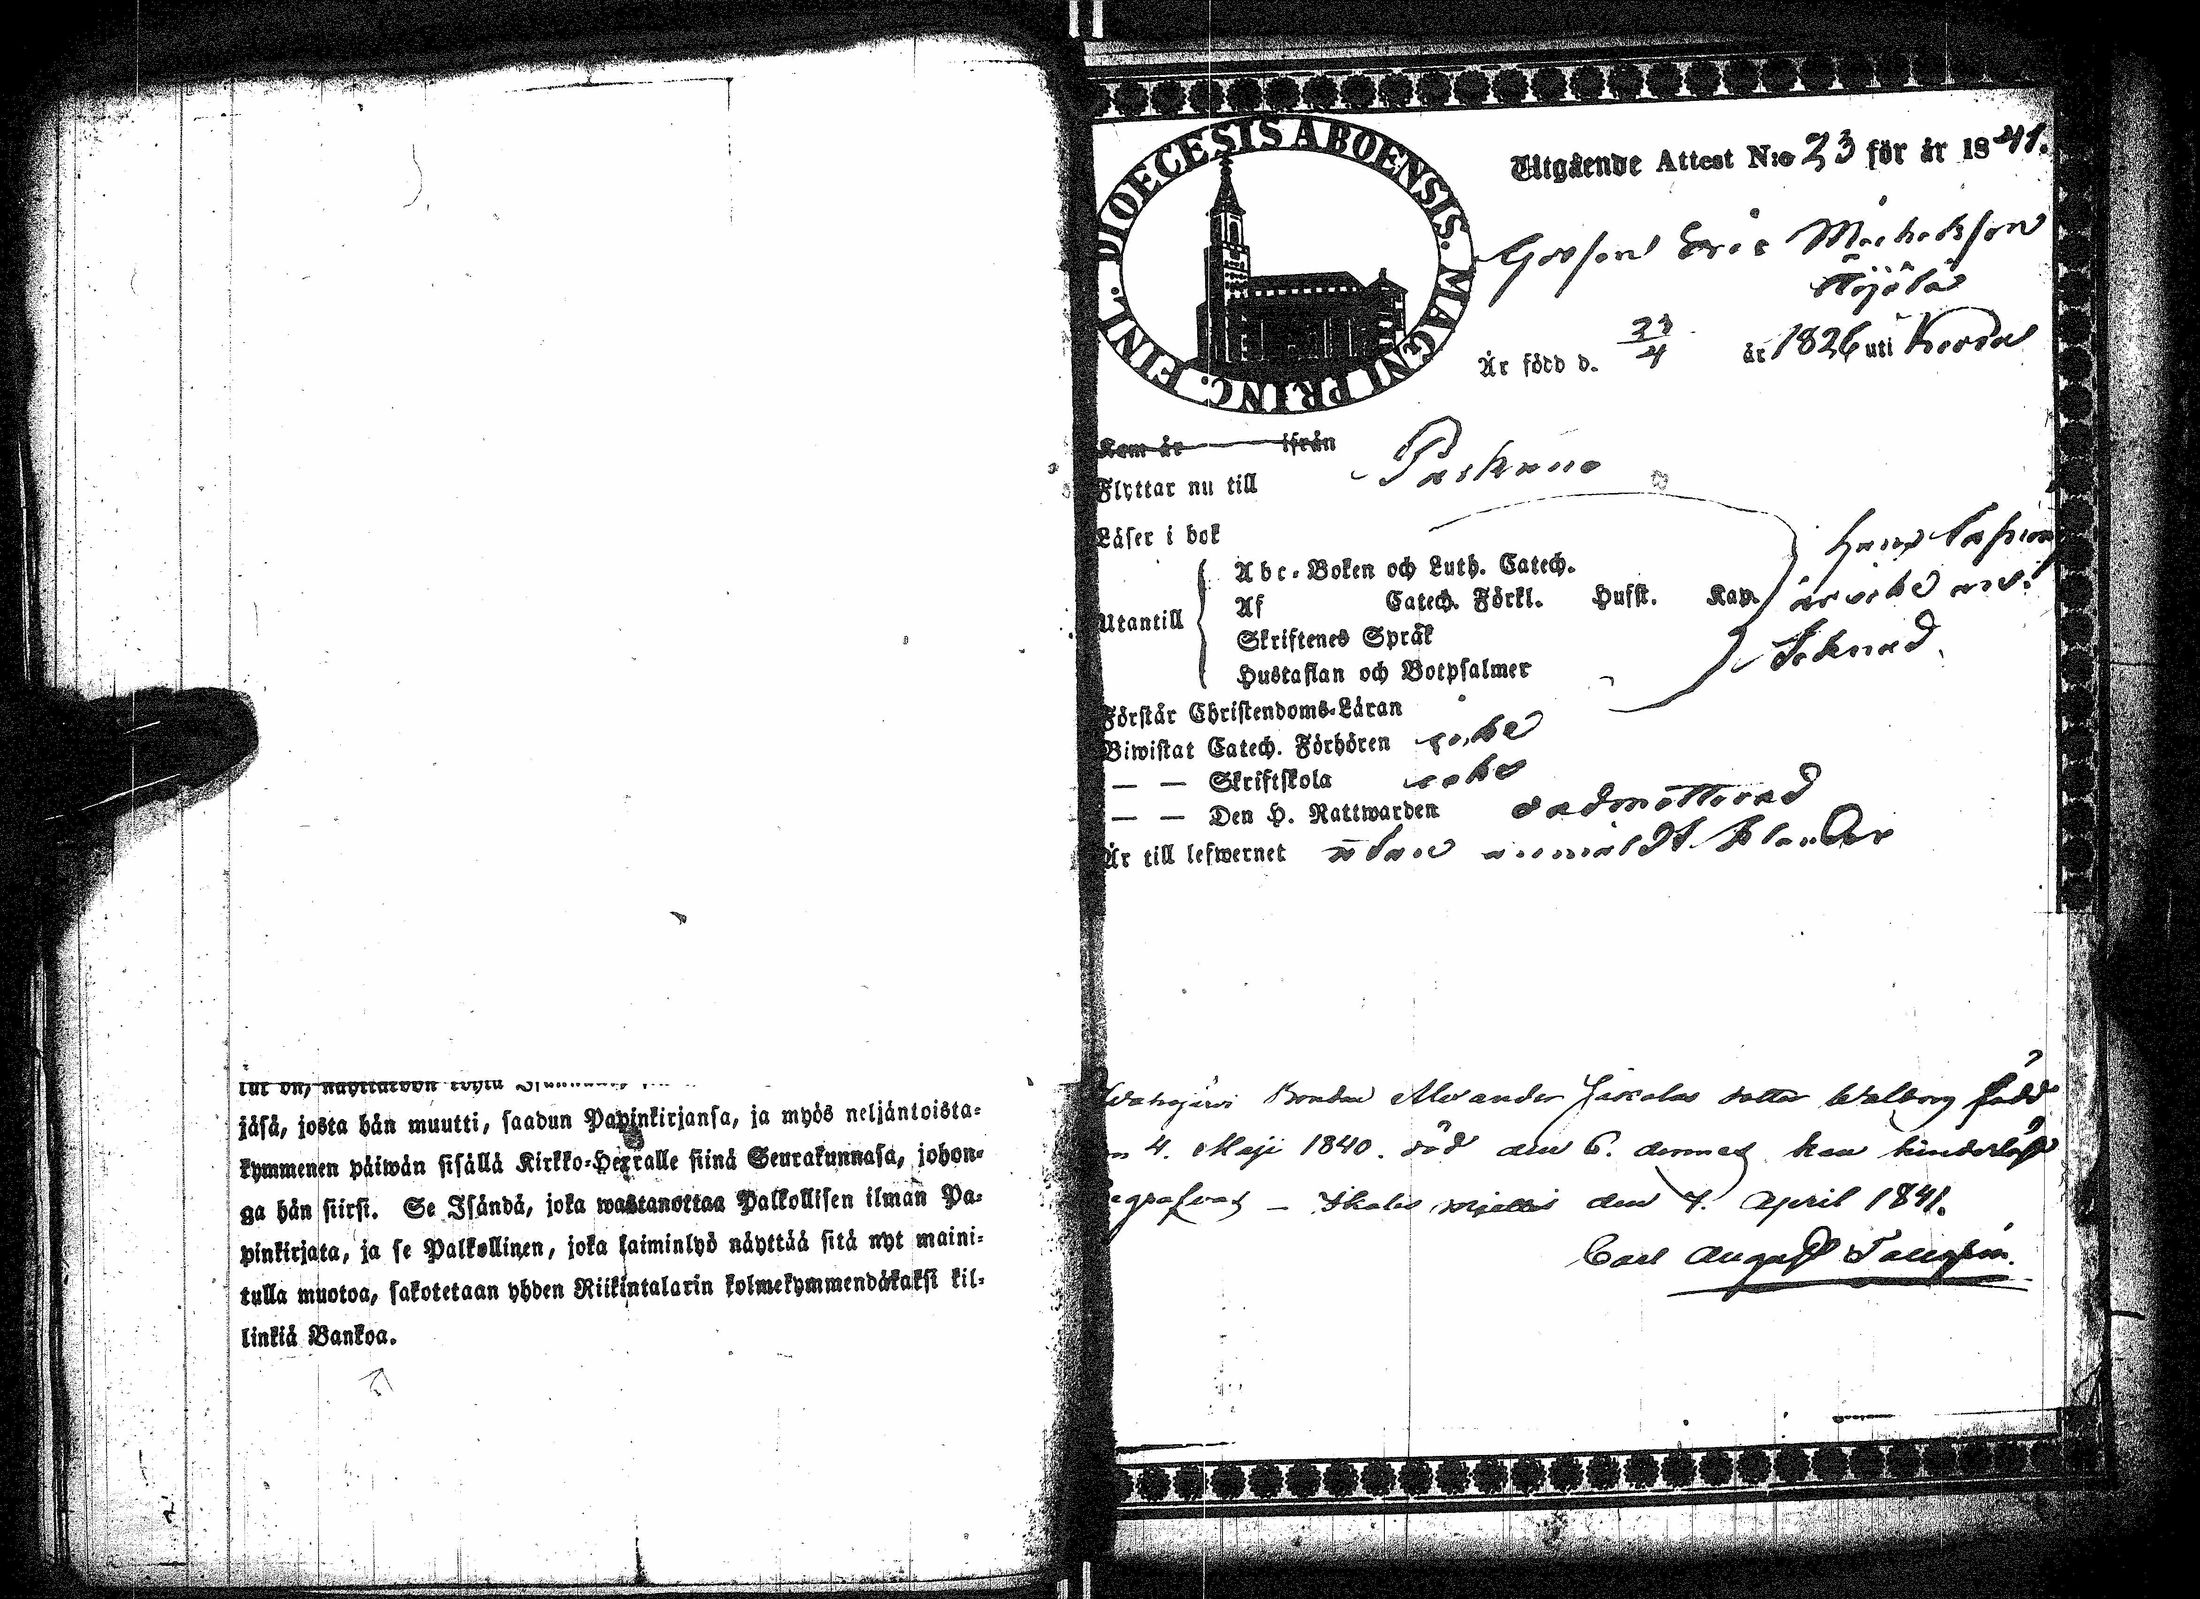 jäsä, josta hän muutti, saadun Papinkirjansa, ja myös neljäntoista-
kymmenen päiwän sisällä Kirkko-Herralle siinä Seurakunnasa, johon-
ga hän siirsi. Se Isändä, joka wastanottaa Palkollisen ilman Pa-
pinkirjata, ja se Palkollinen, joka laiminlyö näyttää sitä nyt maini-
tulla muotoa, sakotetaan yhden Riikintalarin kolmekymmendäkaksi kil-
linkiä Bankoa.
DIOECESIS ABOENSIS. MAGNI PRINC. FINL.
Utgående Attest N:o 23 för år 1841.
Gossen Eric Michelsson
Är född d. 23/4 år 1826 uti
Kom år ifrån
Flyttar nu till
Läser i bok
Abc-Boken och Luth. Catech.
Utantill Af Catech. Förkl. Hufst. Kap.
Skriftenes Språk
Hustaflan och Botpsalmer
Förstår Christendoms-Läran
Biwistat Catech. Förhören
— — Skriftskola
— — Den H. Nattwarden oadmitterad
Är till lefwernet utan anmäldt klander
Bondens Alexander dotter Walborg född
4. Maji 1840. död den 6. kan hinderlöst
begrafvas den 7. April 1841.
Carl August